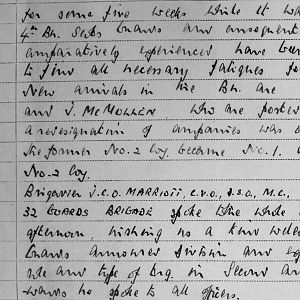 for some five weeks while it wa
4th Bn. Scots Guards and consequent
comparatively experienced have been
to find all necessary fatigues fo
New arrivals in the Bn. are
and J. McMOLLEN who are posted
A redesignation of companies was c
the former No. 2 Coy. became No. 1.
No. 2 Coy.
Brigadier J.C.O. MARRIOTT, C.V.O., D.S.O., M.C.,
32 GUARDS BRIGADE spoke to the whole
afternoon wishing us a
Guards Armoured Division and
role and type of Bng. in Second
wards he spoke to all officers.